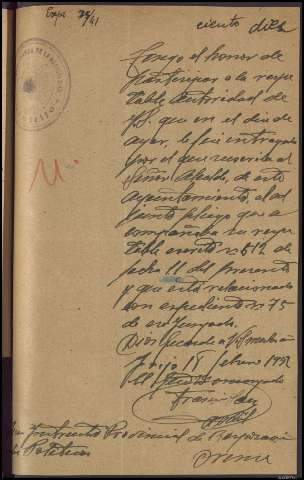 Expe 75/41
ciento diez
Tengo el honor de
participar a la respe
table autoridad de
V.S. que en el dia de
ayer, le fue entregado
por el que suscribe al
Señor Alcalde, de este
Ayuntamiento, el ad
junto pliego que a
compañaba su respe
table escrito nº 612 de
fecha 11 del presente
y que está relacionado
con expediente nº 75
de ese Juzgado.
Dios Guarde a V.S. muchos
18 febrero 1942
El
Francisco
Instructor Provincial de
Politicas
Orense